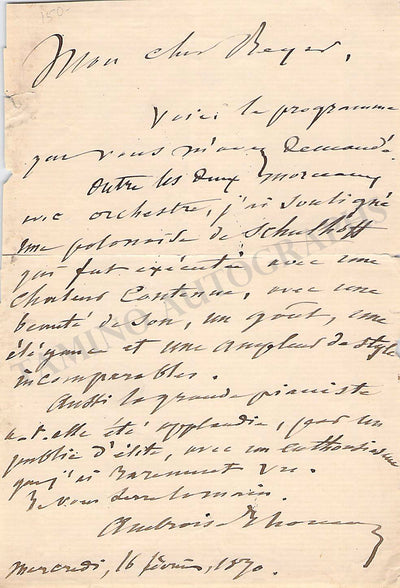 150-
Mon cher Reyer,
Voici le programme
que vous m'avez demandé.
Outre les deux morceaux
avec orchestre, j'ai souligné
une polonaise de Schulhoff
qui fut exécutée avec une
chaleur contenue, avec une
beauté de son, un goût, une
élégance et une ampleur de style
incomparables.
Aussi la grande pianiste
a-t-elle été applaudie, par un
public d'élite, avec un enthousiasme
que j'ai rarement vu.
Je vous serre la main.
Ambroise Thomas
mercredi, 16 février, 1870.
TAMINO AUTOGRAPHS